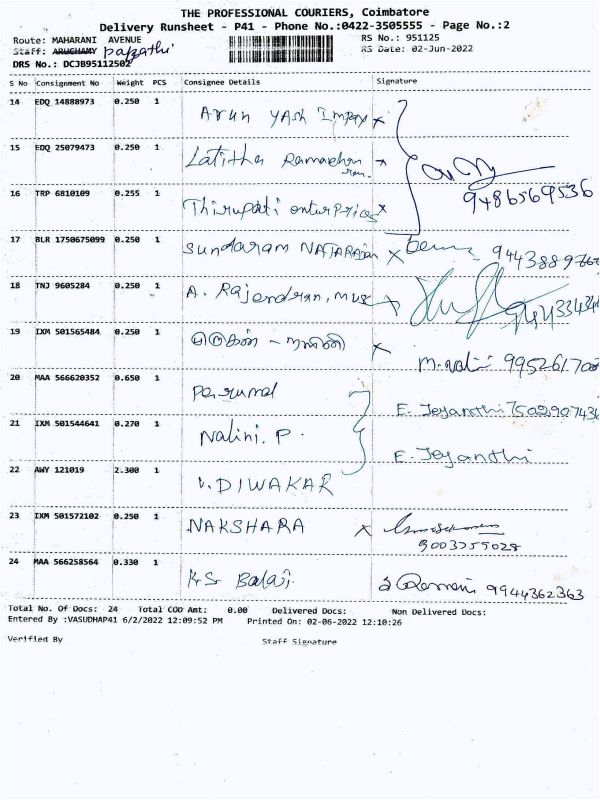 THE PROFESSIONAL COURIERS, Coimbatore
Delivery Runsheet - P41 - Phone No.:0422-3505555 - Page No.:2
Route: MAHARANI AVENUE RS No.: 951125
Staff: ARUCHAMY Pappathi RS Date: 02-Jun-2022
DRS No.: DCJB95112502
S No Consignment No Weight PCS Consignee Details Signature
14 EDQ 14888973 0.250 1 Arun Yash Impex x
15 EDQ 25079473 0.250 1 Lalitha x
16 TRP 6810109 0.255 1 Thirupati enterprices x 9486569536
17 BLR 1750675099 0.250 1 Sundaram NATARAJAN x
18 TNJ 9605284 0.250 1 A. Rajendran, x
19 IXM 501565484 0.250 1 x
20 MAA 566620352 0.650 1 Perumal E. Jeyanthi
21 IXM 501544641 0.270 1 Nalini. P. E. Jeyanthi
22 AWY 121019 2.300 1 V. DIWAKAR
23 IXM 501572102 0.250 1 NAKSHARA x
24 MAA 566258564 0.330 1 K.S. Balaji 9944362363
Total No. Of Docs: 24 Total COD Amt: 0.00 Delivered Docs: Non Delivered Docs:
Entered By :VASUDHAP41 6/2/2022 12:09:52 PM Printed On: 02-06-2022 12:10:26
Verified By Staff Signature